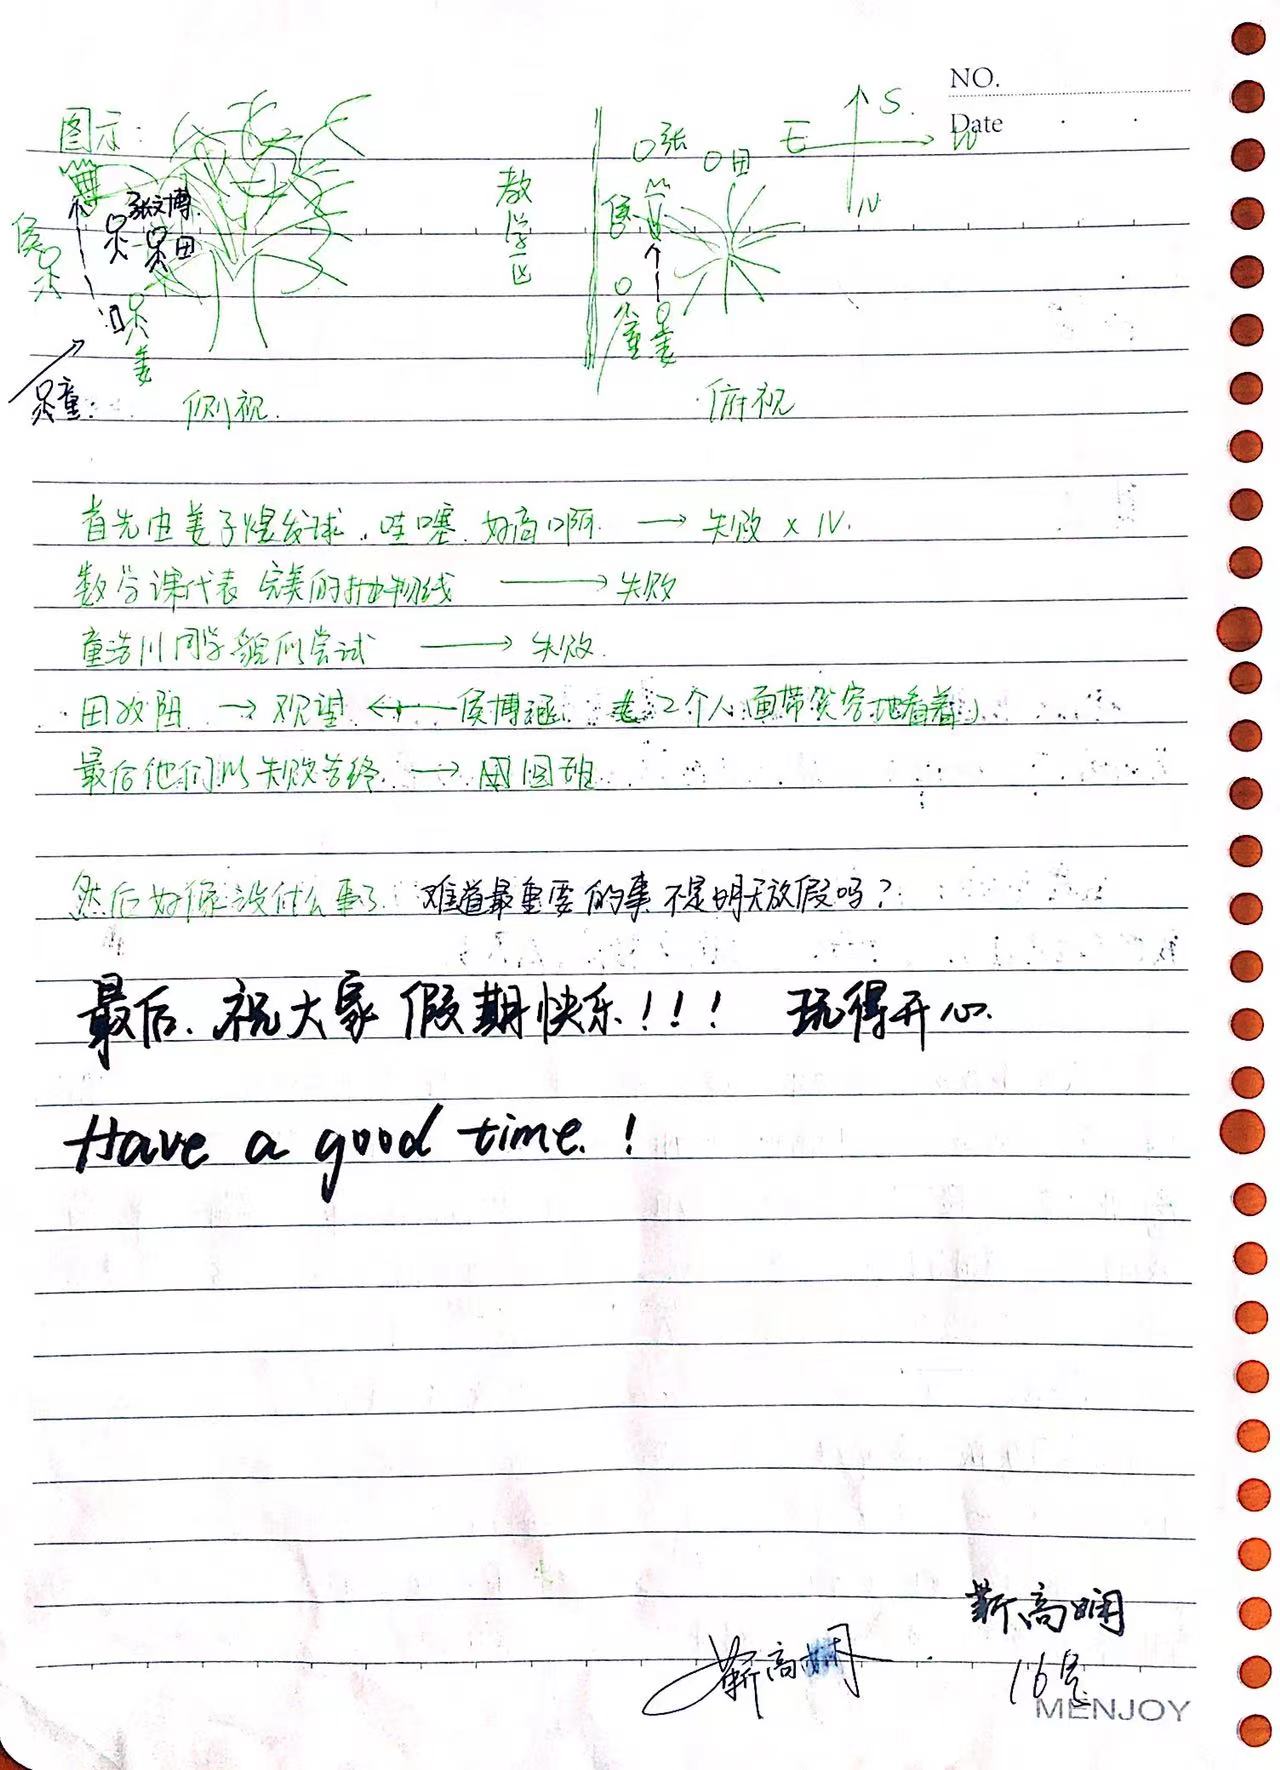 NO.
Date
图示:
S.
E
W
N
张文博
田
侯
姜
童
侧视.
教学区
张
田
侯
童
姜
俯视
首先由姜子煜发球.哇塞.好高啊. → 失败 × N.
数学课代表 完美的抛物线 → 失败
童浩川同学貌似尝试 → 失败.
田 → 观望 ← 侯博涵. 2个人面带笑容地看着)
最后他们以失败告终. → 回班
然后好像没什么事了. 难道最重要的事不是明天放假吗?
最后.祝大家假期快乐!!! 玩得开心.
Have a good time.!
靳高娴
靳高娴
16号
MENJOY